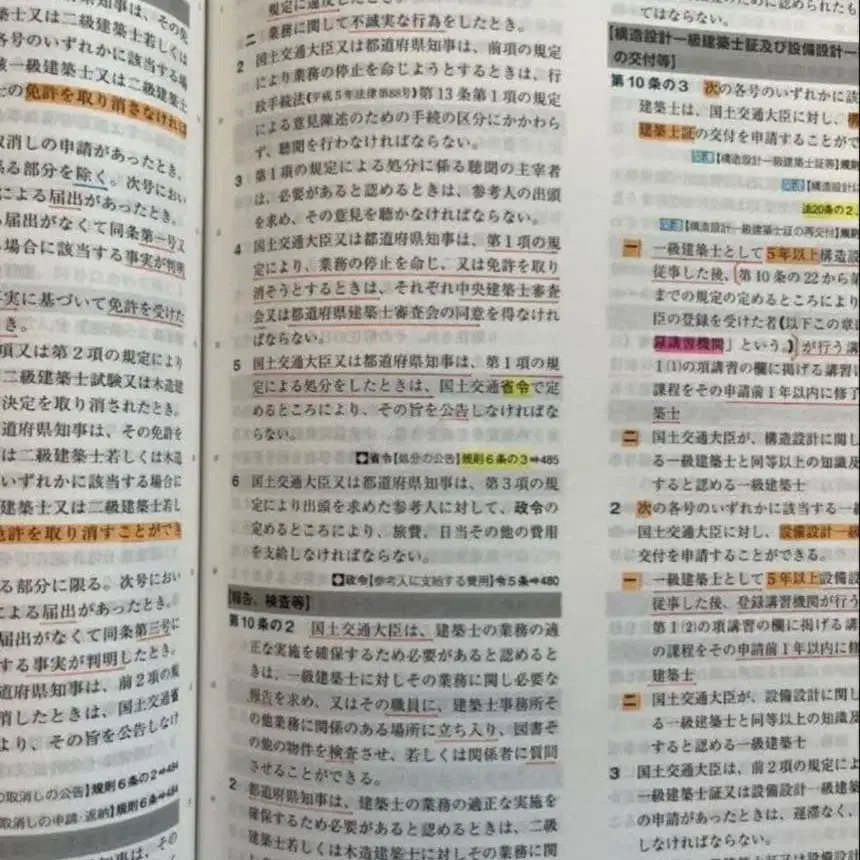 知事は、その免
士又は二級建築士若しくは
各号のいずれかに該当する場
一級建築士又は二級建築士
士の免許を取り消さなければ
取消しの申請があったとき、
係る部分を除く。次号におい
による届出があったとき。
る届出がなくて同条第一号又
る場合に該当する事実が判明
実に基づいて免許を受けた
き。
項又は第2項の規定により
二級建築士試験又は木造建
決定を取り消されたとき。
道府県知事は、その免許を
は二級建築士若しくは木造
いずれかに該当する場合に
建築士又は二級建築士若し
免許を取り消すことができ
る部分に限る。次号におい
による届出があったとき。
届出がなくて同条第三号に
する事実が判明したとき。
道府県知事は、前2項の規
消したときは、国土交通省
より、その旨を公告しなけ
の取消しの公告】規則6条の2➡484
取消しの申請・返納】規則6条➡484
知事は、その
規定に違反したとき。
二 業務に関して不誠実な行為をしたとき。
2 国土交通大臣又は都道府県知事は、前項の規定
により業務の停止を命じようとするときは、行
政手続法(平成5年法律第88号)第13条第1項の規定
による意見陳述のための手続の区分にかかわら
ず、聴聞を行わなければならない。
3 第1項の規定による処分に係る聴聞の主宰者
は、必要があると認めるときは、参考人の出頭
を求め、その意見を聴かなければならない。
4 国土交通大臣又は都道府県知事は、第1項の規
定により、業務の停止を命じ、又は免許を取り
消そうとするときは、それぞれ中央建築士審査
会又は都道府県建築士審査会の同意を得なけれ
ばならない。
5 国土交通大臣又は都道府県知事は、第1項の規
定による処分をしたときは、国土交通省令で定
めるところにより、その旨を公告しなければな
らない。
✚省令【処分の公告】規則6条の3➡485
6 国土交通大臣又は都道府県知事は、第3項の規
定により出頭を求めた参考人に対して、政令の
定めるところにより、旅費、日当その他の費用
を支給しなければならない。
✚政令【参考人に支給する費用】令5条➡480
【報告、検査等】
第10条の2 国土交通大臣は、建築士の業務の適
正な実施を確保するため必要があると認めると
きは、一級建築士に対しその業務に関し必要な
報告を求め、又はその職員に、建築士事務所そ
の他業務に関係のある場所に立ち入り、図書そ
の他の物件を検査させ、若しくは関係者に質問
させることができる。
2 都道府県知事は、建築士の業務の適正な実施を
確保するため必要があると認めるときは、二級
建築士若しくは木造建築士に対しその業務に関
てはならない。
【構造設計一級建築士証及び設備設計一
の交付等】
第10条の3 次の各号のいずれかに該
建築士は、国土交通大臣に対し、構
建築士証の交付を申請することがで
【構造設計一級建築士証等】規則
【構造設計
法20条の2
【構造設計一級建築士証の再交付】規則
一 一級建築士として5年以上構造設
従事した後、第10条の22から第
までの規定の定めるところにより
臣の登録を受けた者(以下この章
録講習機関」という。)が行う講
1(1)の項講習の欄に掲げる講習
課程をその申請前1年以内に修了
築士
二 国土交通大臣が、構造設計に関し
る一級建築士と同等以上の知識及
すると認める一級建築士
2 次の各号のいずれかに該当する一級
国土交通大臣に対し、設備設計一級
交付を申請することができる。
一 一級建築士として5年以上設備設
従事した後、登録講習機関が行う
第1(2)の項講習の欄に掲げる講
の課程をその申請前1年以内に修
建築士
二 国土交通大臣が、設備設計に関し
る一級建築士と同等以上の知識及
すると認める一級建築士
3 国土交通大臣は、前2項の規定によ
一級建築士証又は設備設計一級建築
の申請があったときは、遅滞なく、
しなければならない。